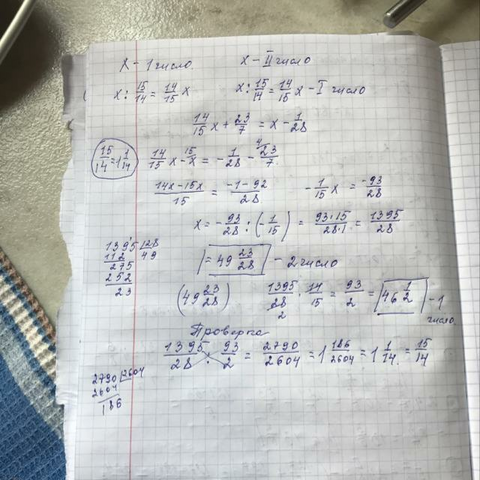 x - 1 число. x - II число
x : 15/14 = 14/15 x x : 15/14 = 14/15 x - I число
14/15 x + 23/7 = x - 1/28
15/14 = 1 1/14 14/15 x - x = - 1/28 - 23/7
15 4
14x - 15x / 15 = -1 - 92 / 28 - 1/15 x = -93/28
x = - 93/28 : (- 1/15) = 93·15 / 28·1 = 1395/28
1395 | 28
112 49
275
252
23
= 49 23/28 - 2 число
(49 23/28) 1395/28 · 14/15 = 93/2 = 46 1/2 - 1 число.
2
Проверка
1395/28 : 93/2 = 2790/2604 = 1 186/2604 = 1 1/14 = 15/14
2790 | 2604
2604
186